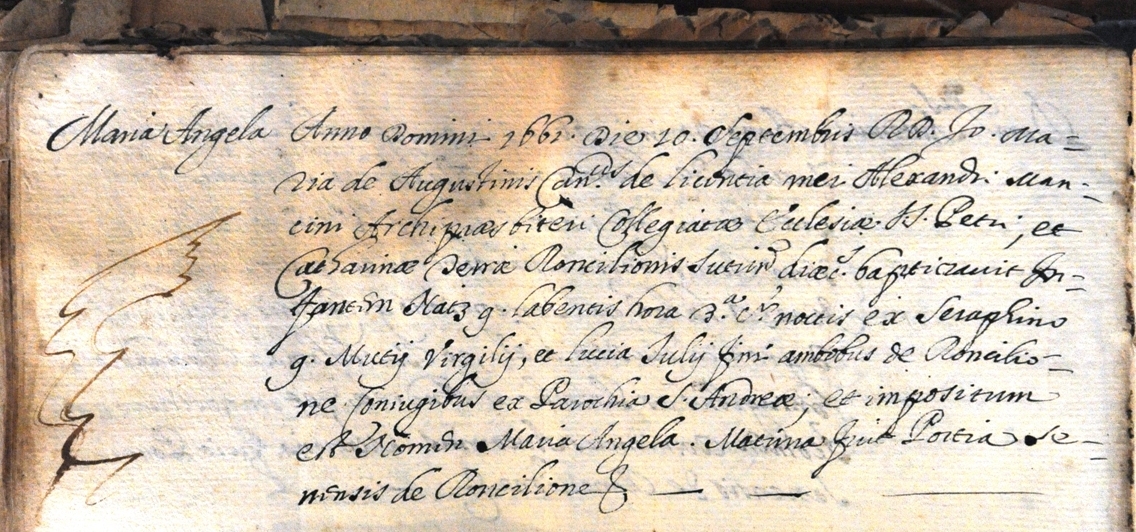 Maria Angela Anno Domini 1661. Die 10. Septembris R.D. Jo. Ma=
ria de Augustinis Can.cus de licentia mei Alexandri Man-
cini Archipræsbiteri Collegiatæ Ecclesiæ SS. Petri, et
Catharinæ Terræ Roncilionis Sutrin. diæc. baptizavit In=
fantem Natā 9. labentis hora noctis ex Seraphino
q. Mutij Virgilij, et Lucia Julij ambobus de Roncilio-
ne Coniugibus ex Parochia S. Andreæ, et impositum
est Nomen Maria Angela. Matrina fuit Portia Se-
nensis de Roncilione